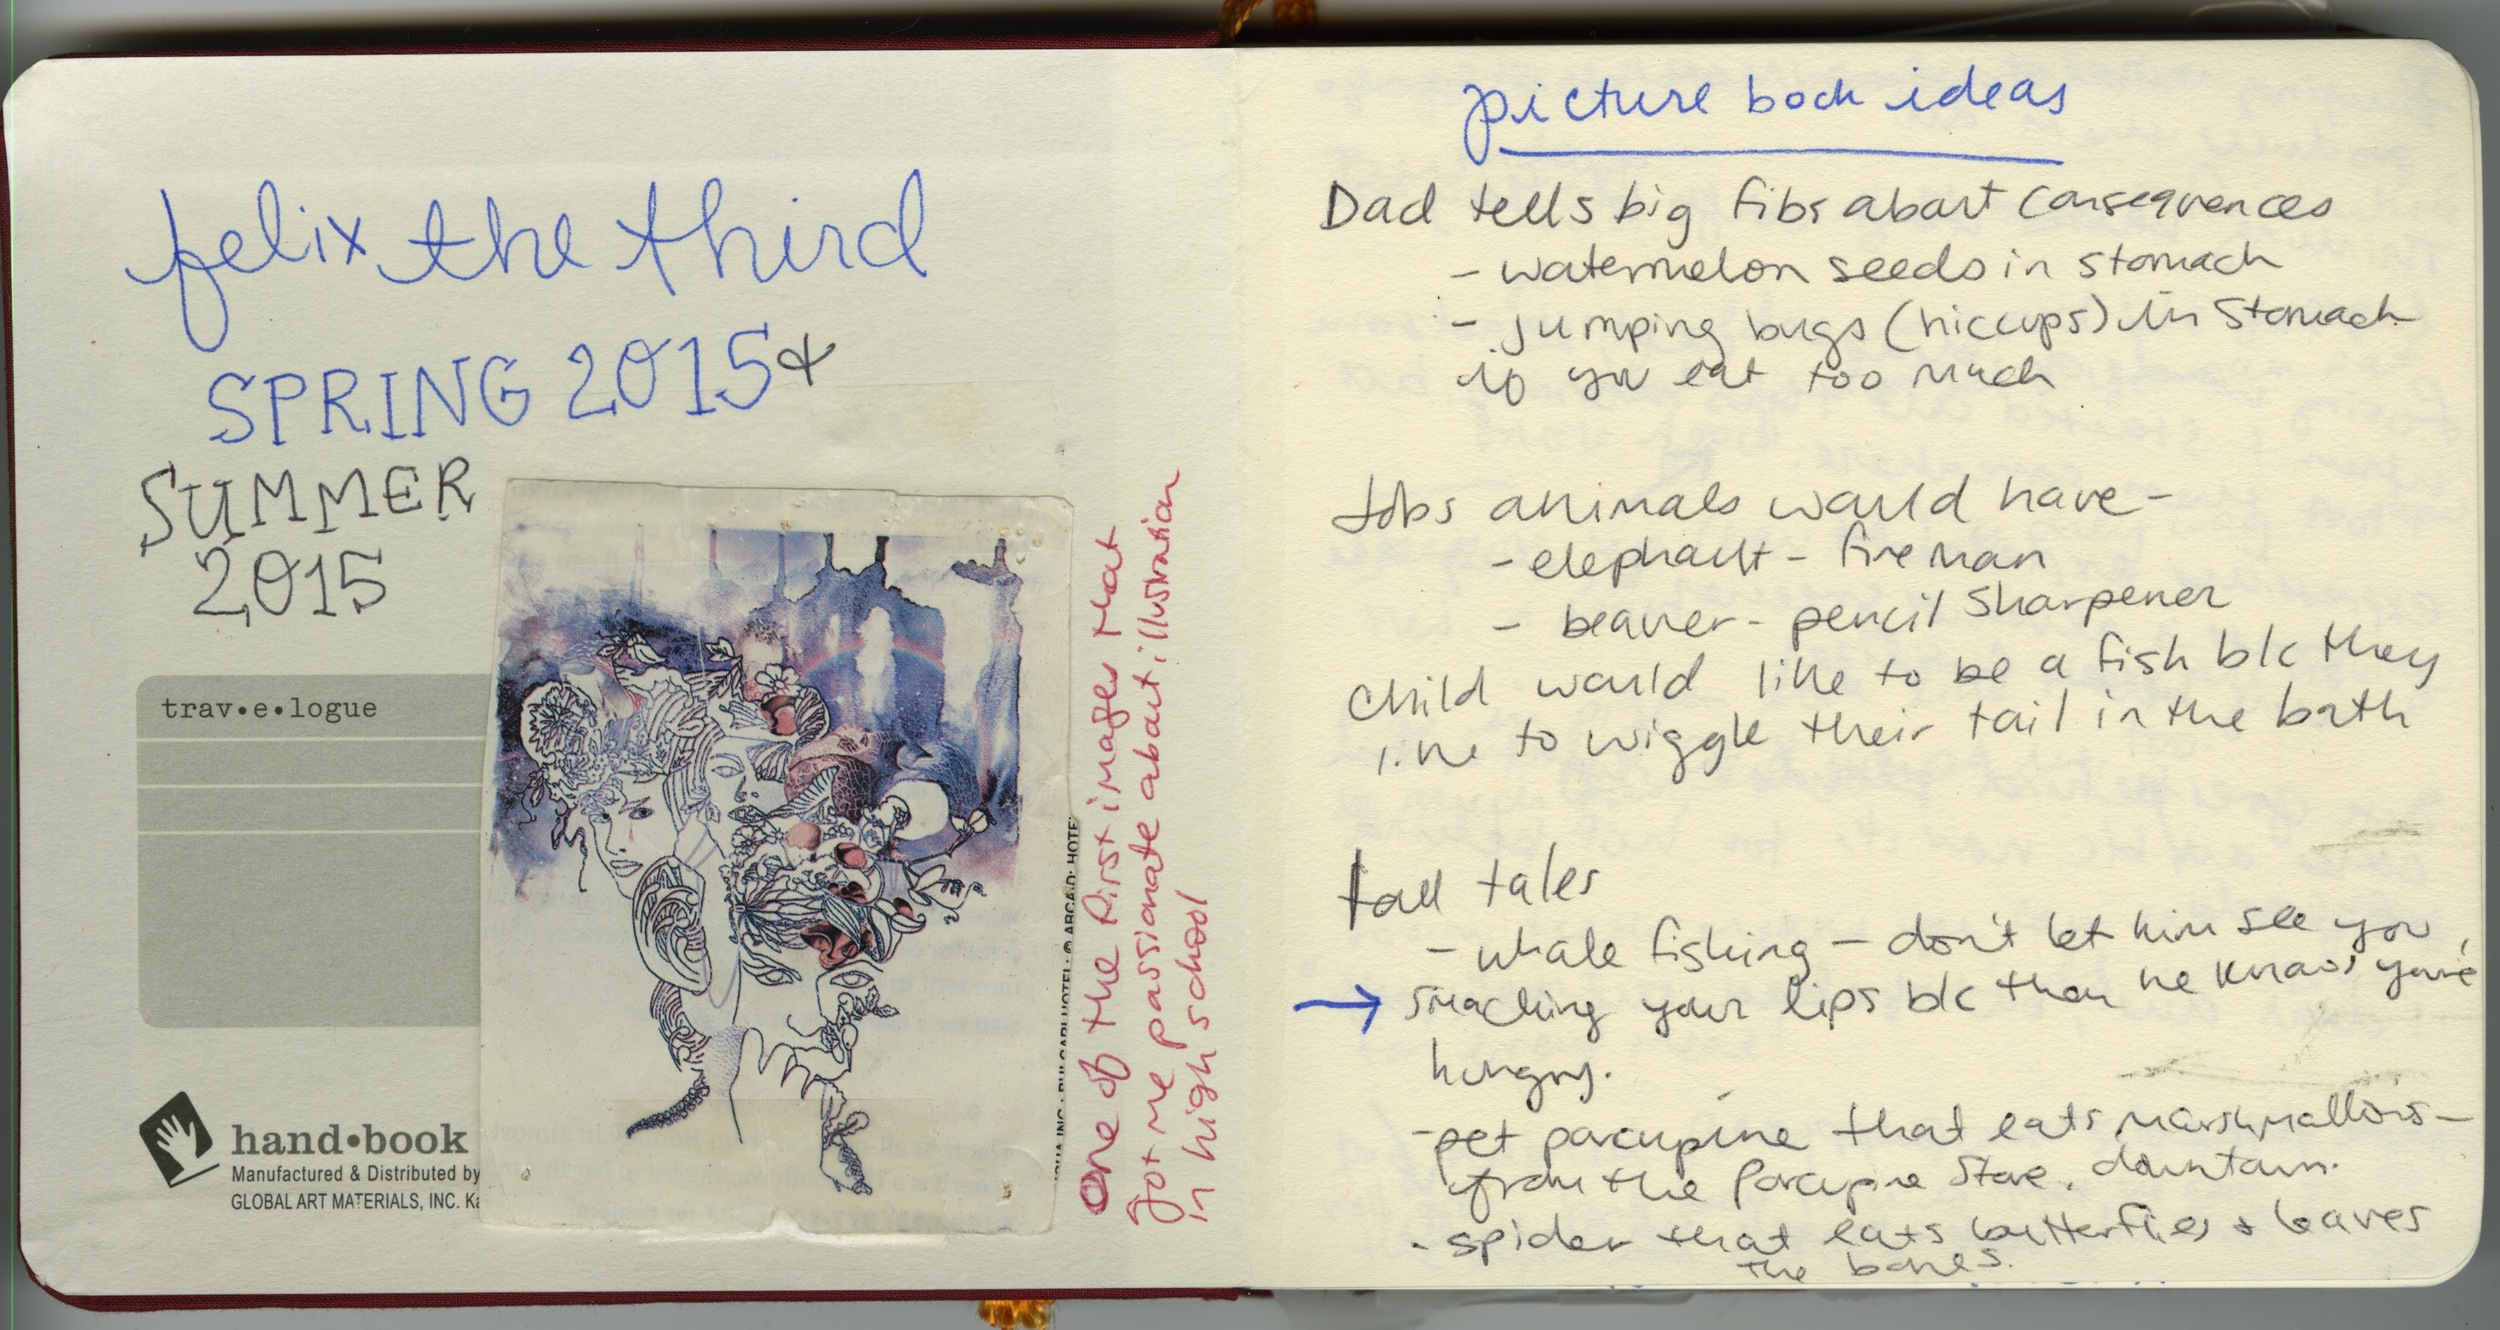 felix the third
SPRING 2015 &
SUMMER
2015
trav•e•logue
hand•book
Manufactured & Distributed by
GLOBAL ART MATERIALS, INC. Ka
One of the first images that
got me passionate about illustration
in high school
picture book ideas
Dad tells big fibs about consequences
- watermelon seeds in stomach
- jumping bugs (hiccups) in stomach
if you eat too much
Jobs animals would have -
- elephant - fireman
- beaver - pencil sharpener
Child would like to be a fish b/c they
like to wiggle their tail in the bath
tall tales
- whale fishing - don't let him see you
→ smacking your lips b/c then he knows you're
hungry.
- pet porcupine that eats marshmallows -
from the Porcupine Store. downtown.
- spider that eats butterflies & leaves
the bones.